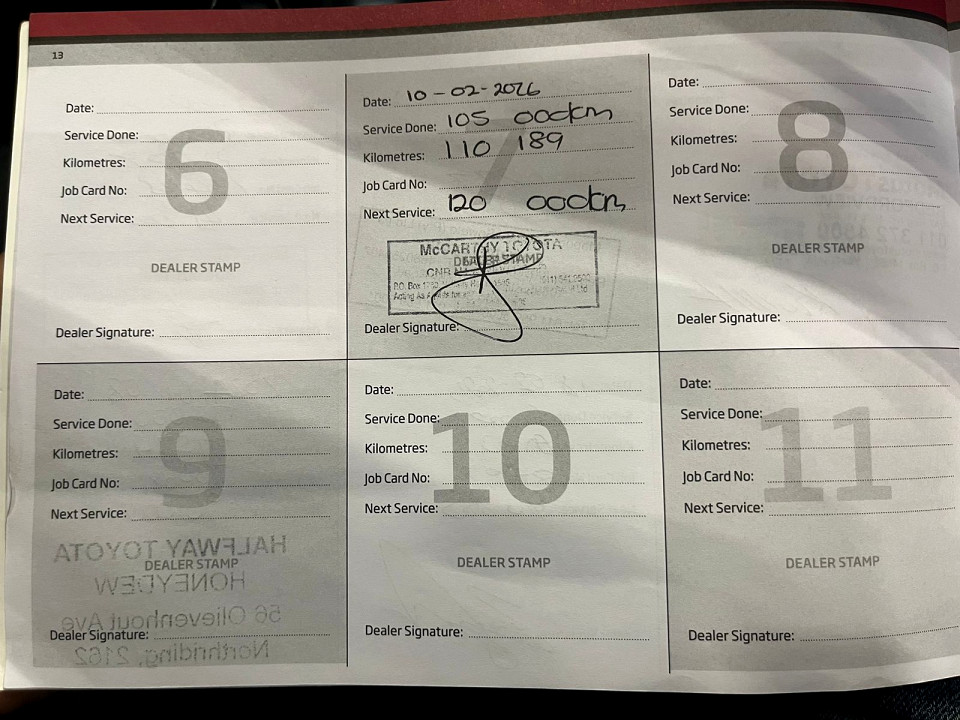 13
6
Date:
Service Done:
Kilometres:
Job Card No:
Next Service:
DEALER STAMP
Dealer Signature:
7
Date: 10-02-2026
Service Done: 105 000km
Kilometres: 110 189
Job Card No:
Next Service: 120 000km
McCARTHY TOYOTA
DEALER STAMP
CNR
P.O. Box
Dealer Signature:
8
Date:
Service Done:
Kilometres:
Job Card No:
Next Service:
DEALER STAMP
Dealer Signature:
9
Date:
Service Done:
Kilometres:
Job Card No:
Next Service:
HALFWAY TOYOTA
DEALER STAMP
HONEYDEW
56 Olievenhout Ave
Dealer Signature:
Northriding, 2162
10
Date:
Service Done:
Kilometres:
Job Card No:
Next Service:
DEALER STAMP
Dealer Signature:
11
Date:
Service Done:
Kilometres:
Job Card No:
Next Service:
DEALER STAMP
Dealer Signature: